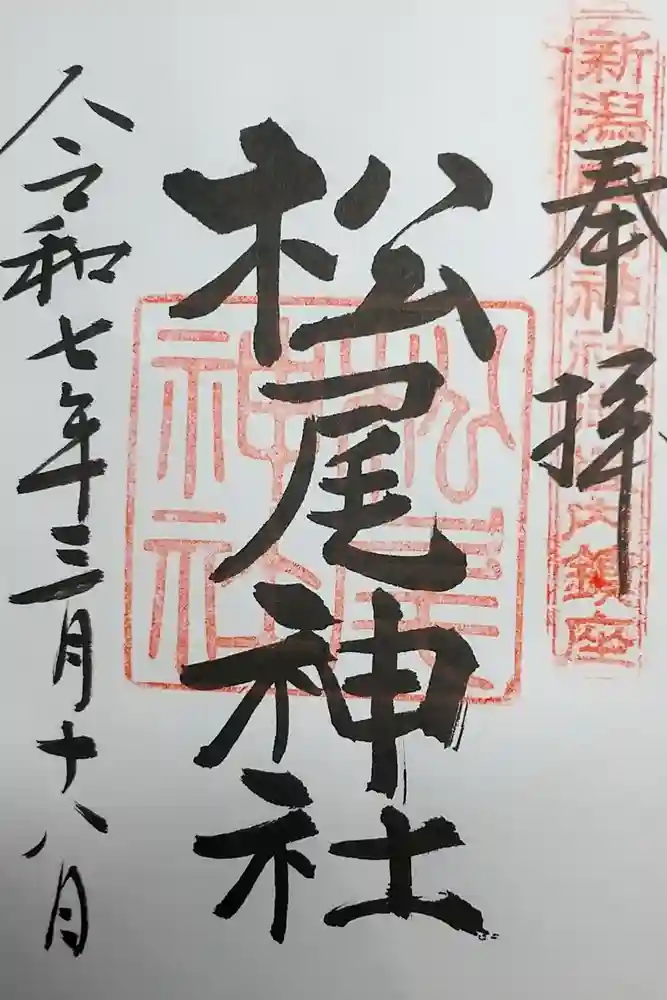 奉拝
新潟神社内鎮座
松尾神社
松尾神社
令和七年三月十八月